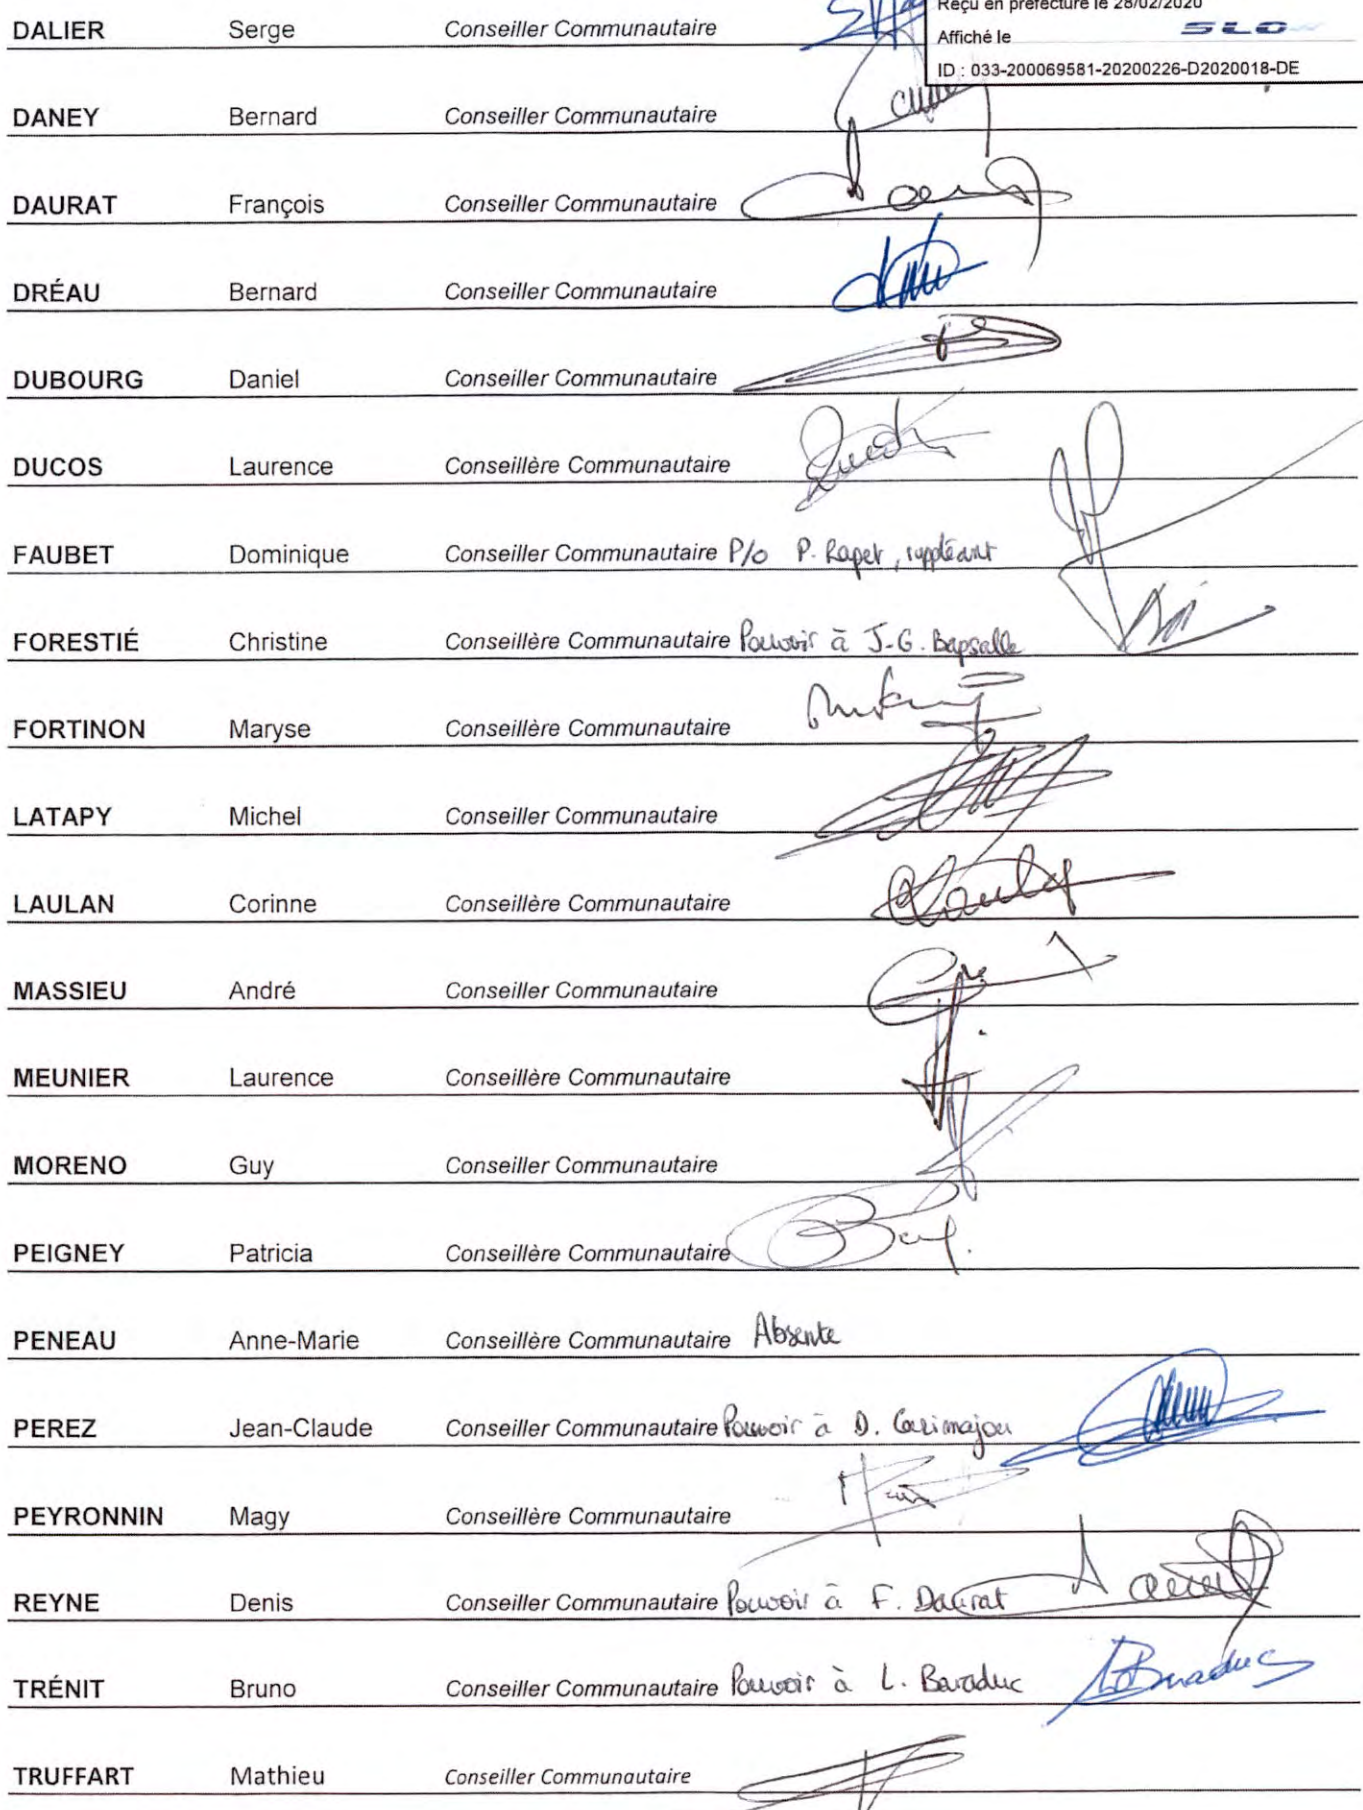 Reçu en préfecture le 28/02/2020
Affiché le SLO
ID : 033-200069581-20200226-D2020018-DE
DALIER Serge Conseiller Communautaire
DANEY Bernard Conseiller Communautaire
DAURAT François Conseiller Communautaire
DRÉAU Bernard Conseiller Communautaire
DUBOURG Daniel Conseiller Communautaire
DUCOS Laurence Conseillère Communautaire
FAUBET Dominique Conseiller Communautaire P/o P. Rapet, suppléant
FORESTIÉ Christine Conseillère Communautaire Pouvoir à J-G. Bapsalle
FORTINON Maryse Conseillère Communautaire
LATAPY Michel Conseiller Communautaire
LAULAN Corinne Conseillère Communautaire
MASSIEU André Conseiller Communautaire
MEUNIER Laurence Conseillère Communautaire
MORENO Guy Conseiller Communautaire
PEIGNEY Patricia Conseillère Communautaire
PENEAU Anne-Marie Conseillère Communautaire Absente
PEREZ Jean-Claude Conseiller Communautaire Pouvoir à D. Cazimajou
PEYRONNIN Magy Conseillère Communautaire
REYNE Denis Conseiller Communautaire Pouvoir à F. Daurat
TRÉNIT Bruno Conseiller Communautaire Pouvoir à L. Baraduc
TRUFFART Mathieu Conseiller Communautaire